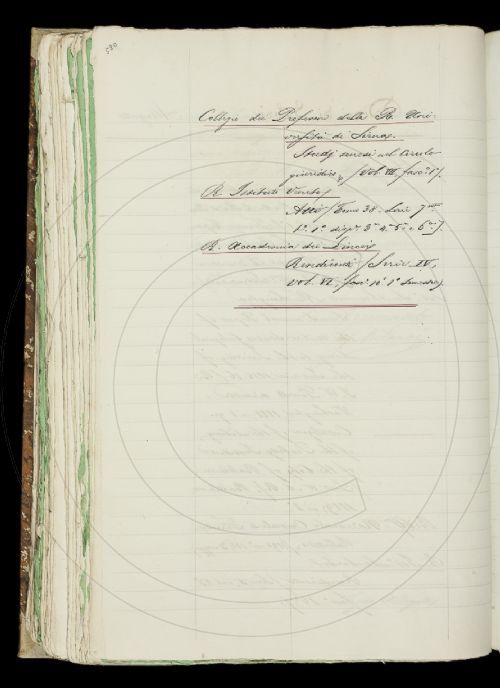 580
Collegio dei Professori della R. Uni-
versità di Siena.
Studj senesi nel Circolo
giuridico, [Vol. VII, fasc. 1°].
R. Istituto Veneto
Atti [Tomo 38. Serie 7ma
1°. disp. 3a 4a 5a e 6a].
R. Accademia dei Lincei
Rendiconti [Serie IV,
Vol. VI, fasc. 10° 1° Semestre].